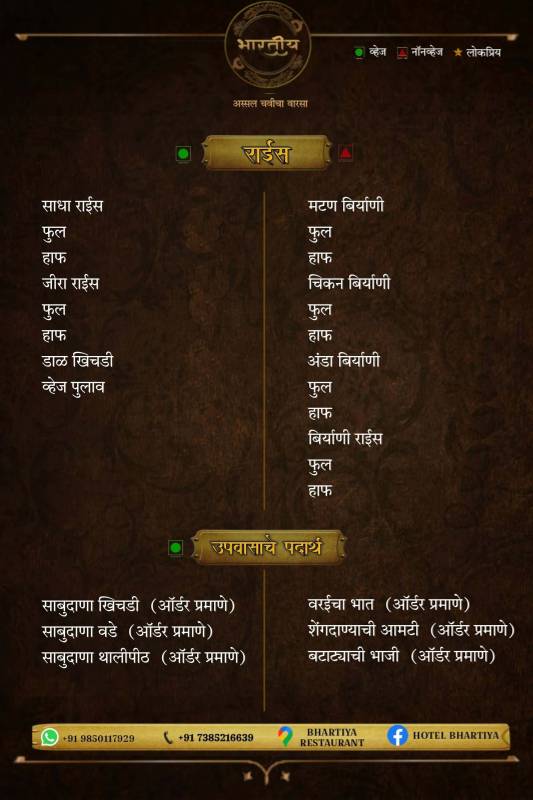 भारतीय
व्हेज
नॉनव्हेज
लोकप्रिय
अस्सल चवीचा वारसा
राईस
साधा राईस
फुल
हाफ
जीरा राईस
फुल
हाफ
डाळ खिचडी
व्हेज पुलाव
मटण बिर्याणी
फुल
हाफ
चिकन बिर्याणी
फुल
हाफ
अंडा बिर्याणी
फुल
हाफ
बिर्याणी राईस
फुल
हाफ
उपवासाचे पदार्थ
साबुदाणा खिचडी (ऑर्डर प्रमाणे)
साबुदाणा वडे (ऑर्डर प्रमाणे)
साबुदाणा थालीपीठ (ऑर्डर प्रमाणे)
वरईचा भात (ऑर्डर प्रमाणे)
शेंगदाण्याची आमटी (ऑर्डर प्रमाणे)
बटाट्याची भाजी (ऑर्डर प्रमाणे)
+91 9850117929
+91 7385216639
BHARTIYA
RESTAURANT
HOTEL BHARTIYA